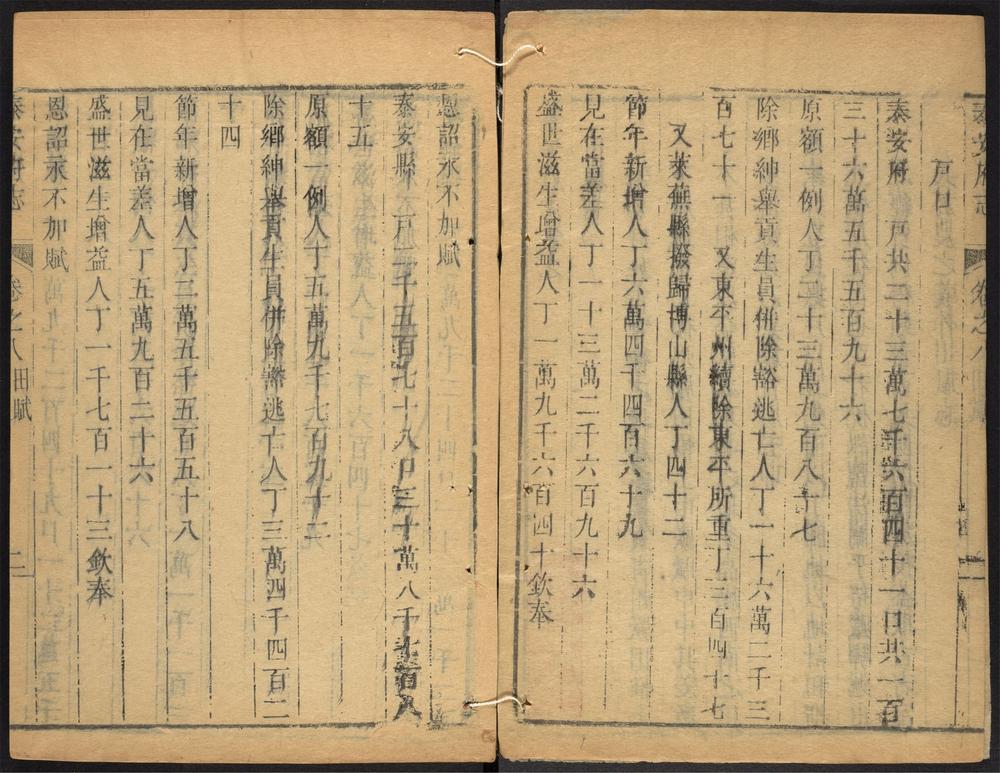 泰安府志 卷之八
戶口
泰安府 戶共二十三萬七千六百四十一口共一百
三十六萬五千五百九十六
原額一例人丁二十三萬九百八十七
除鄉紳舉貢生員併除豁逃亡人丁一十六萬二千三
百七十一 又東平州續除東平所重丁三百四十七
又萊蕪縣撥歸博山縣人丁四十二
節年新增人丁六萬四千四百六十九
見在當差人丁一十三萬二千六百九十六
盛世滋生增益人丁一萬九千六百四十欽奉
恩詔永不加賦
泰安縣 戶 千五百七十八口三十萬八千七百八
十五
原額一例人丁五萬九千七百九十二
除鄉紳舉貢生員併除豁逃亡人丁三萬四千四百二
十四
節年新增人丁二萬五千五百五十八
見在當差人丁五萬九百二十六
盛世滋生增益人丁一千七百一十三欽奉
恩詔永不加賦
泰安府志 卷之八 田賦 二